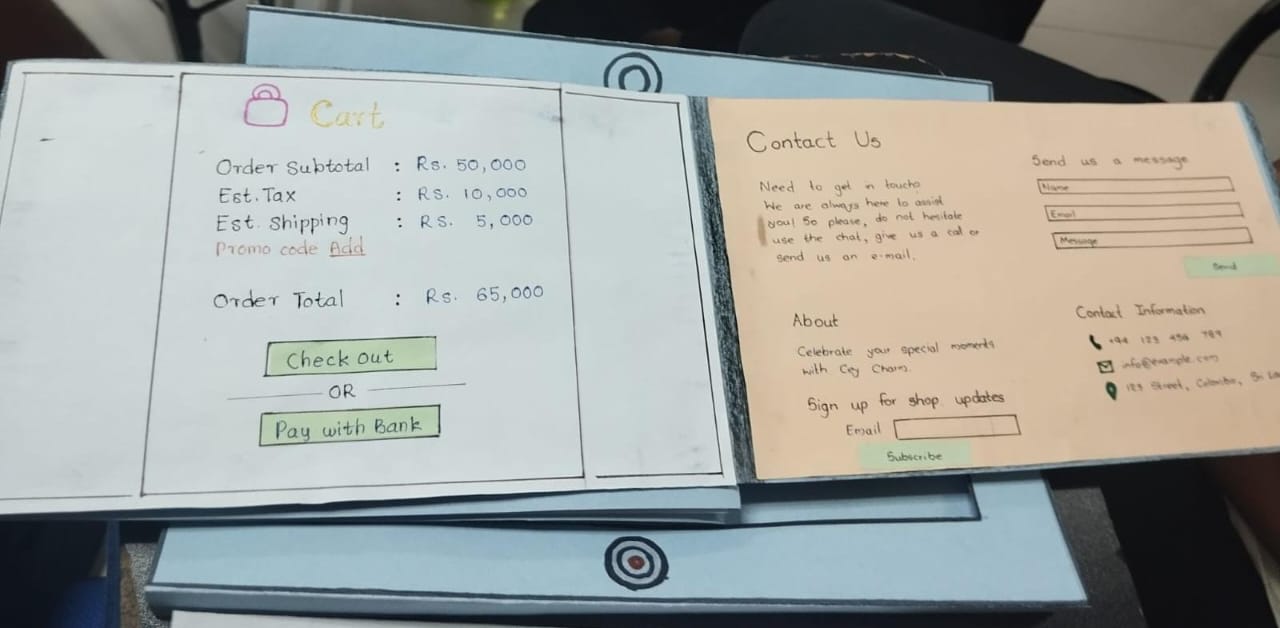 Cart
Order Subtotal : Rs. 50,000
Est. Tax : Rs. 10,000
Est. Shipping : Rs. 5,000
Promo code Add
Order Total : Rs. 65,000
Check out
OR
Pay with Bank
Contact Us
Need to get in touch?
We are always here to assist
you! So please, do not hesitate
use the chat, give us a call or
send us an e-mail.
About
Celebrate your special moments
with Cey Charm.
Sign up for shop updates
Email
Subscribe
Send us a message
Name
Email
Message
Send
Contact Information
+94 123 456 789
info@example.com
123 Street, Colombo, Sri